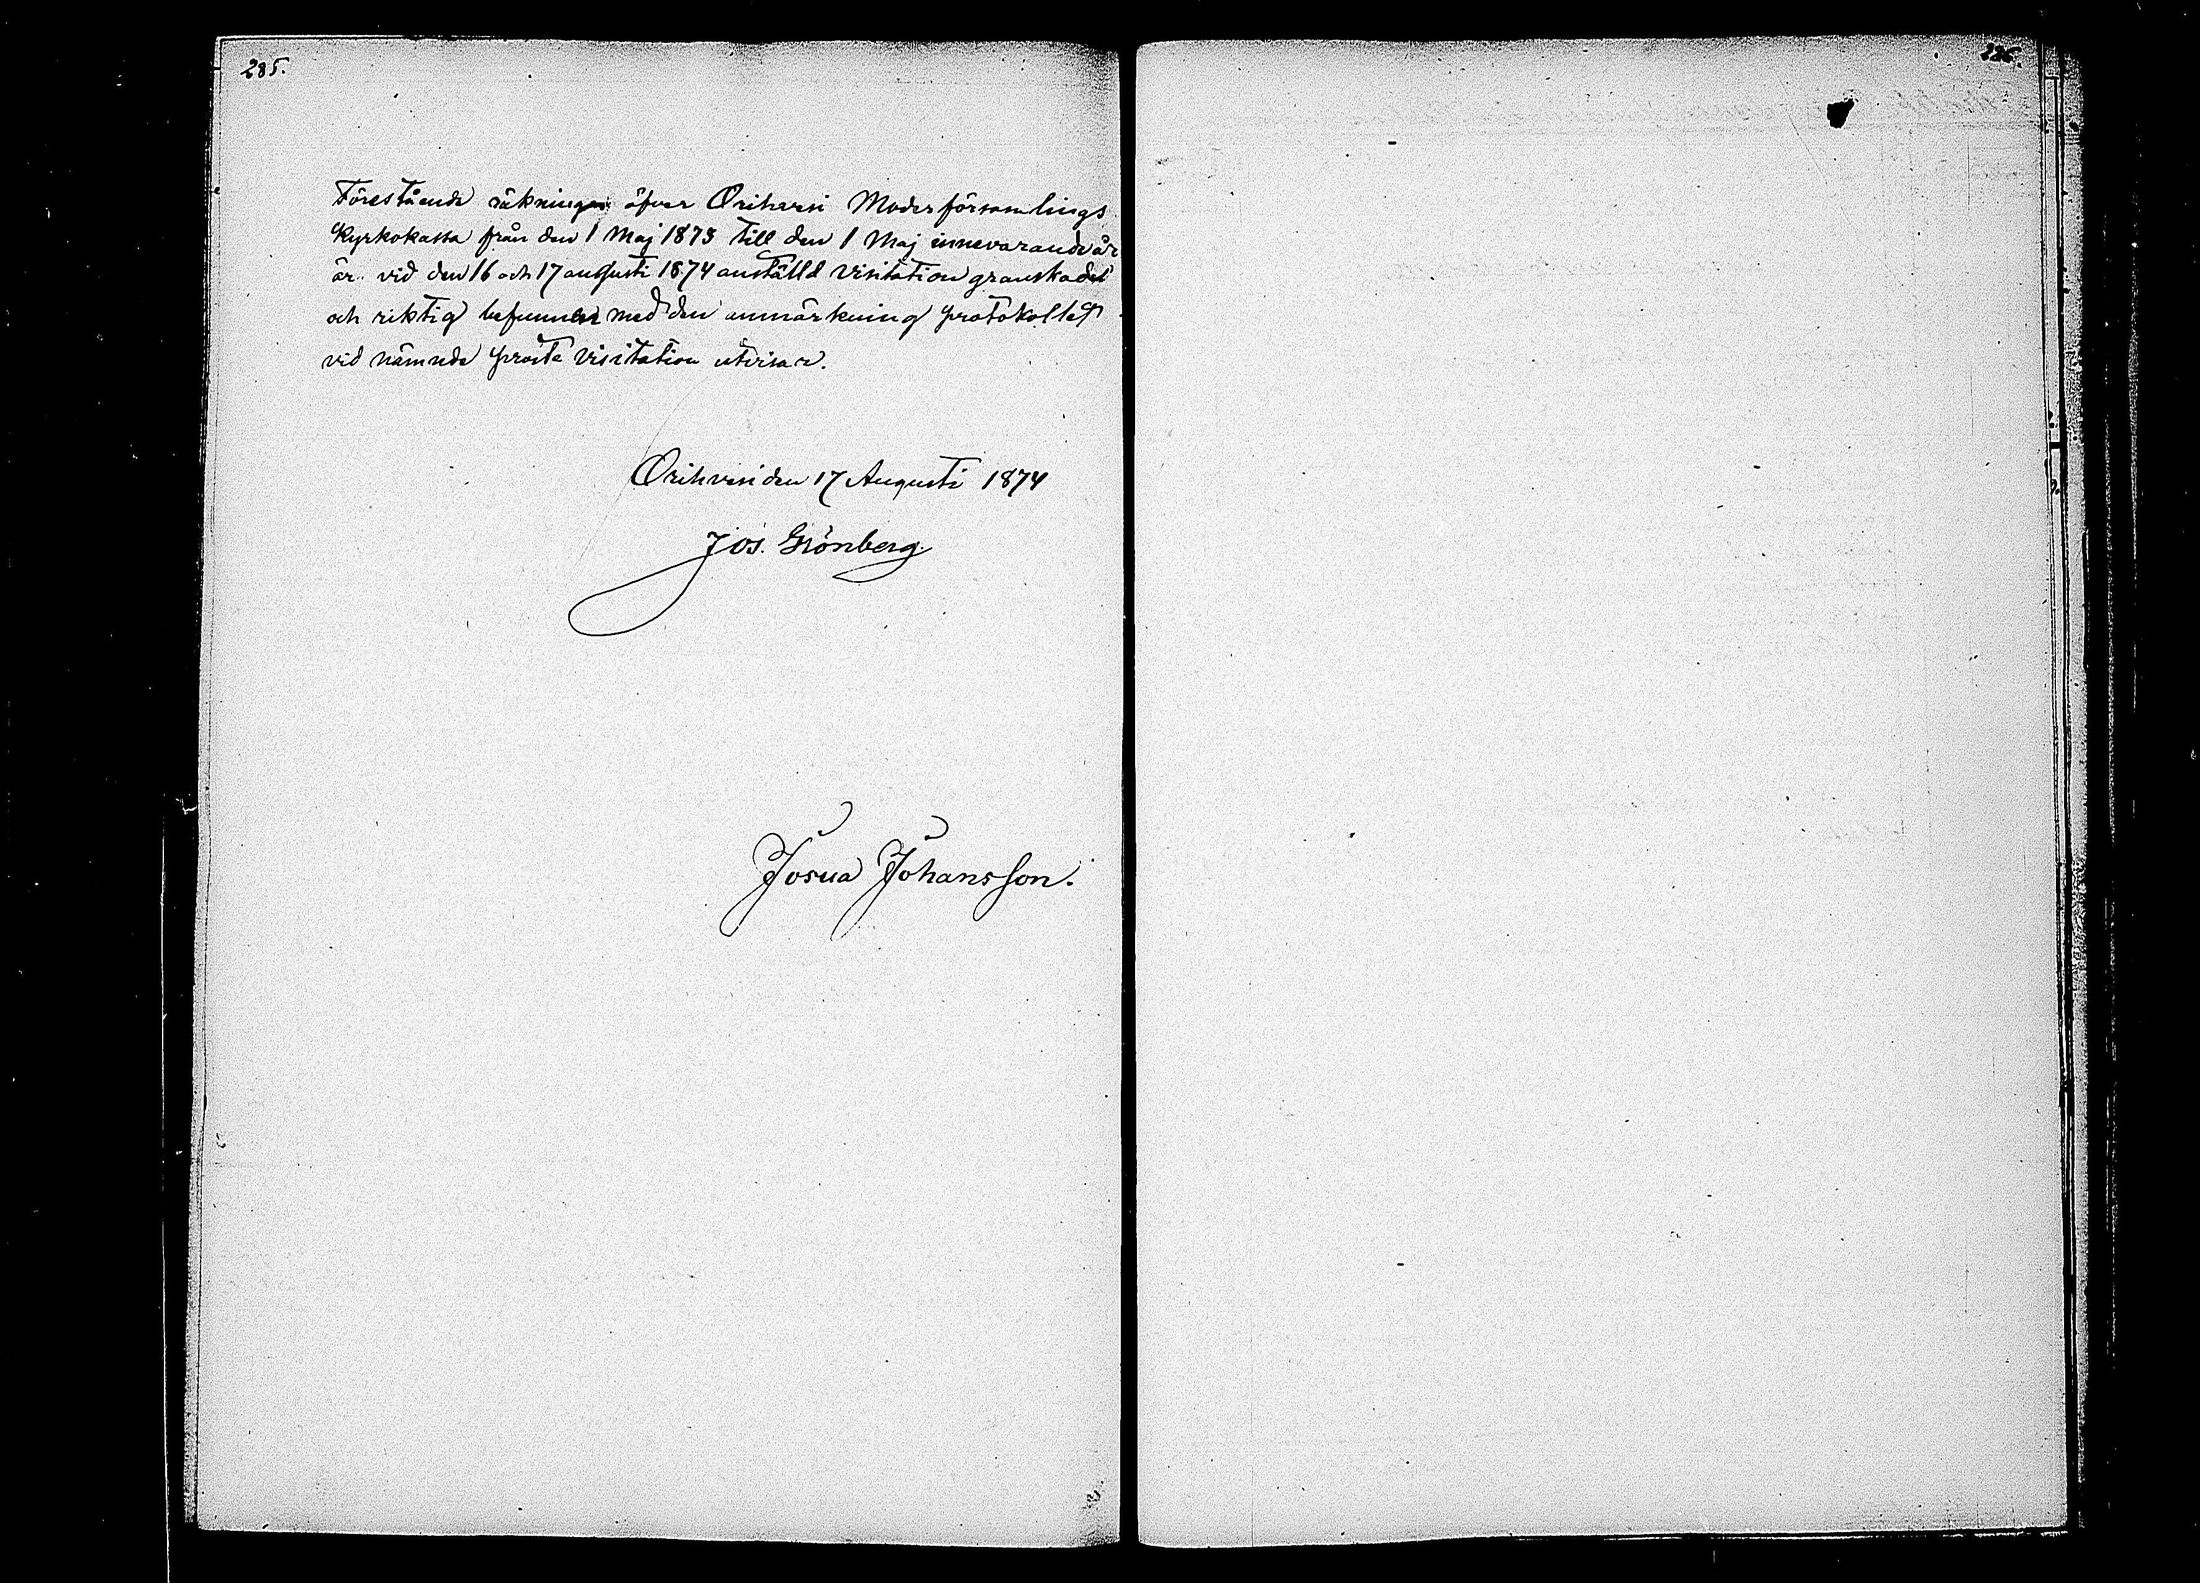 285.
286.
Förestående räkningen öfver Orihvesi Moderförsamlings
Kyrkokassa från den 1 Maj 1873 till den 1 Maj innevarande år
är vid den 16 och 17 augusti 1874 anställd visitation granskadt
och riktig befunnen med den anmärkning protokollet
vid nämnde prosta visitation utvisar.
Orihvesi den 17 Augusti 1874
Jos. Grönberg.
Josua Johansson.